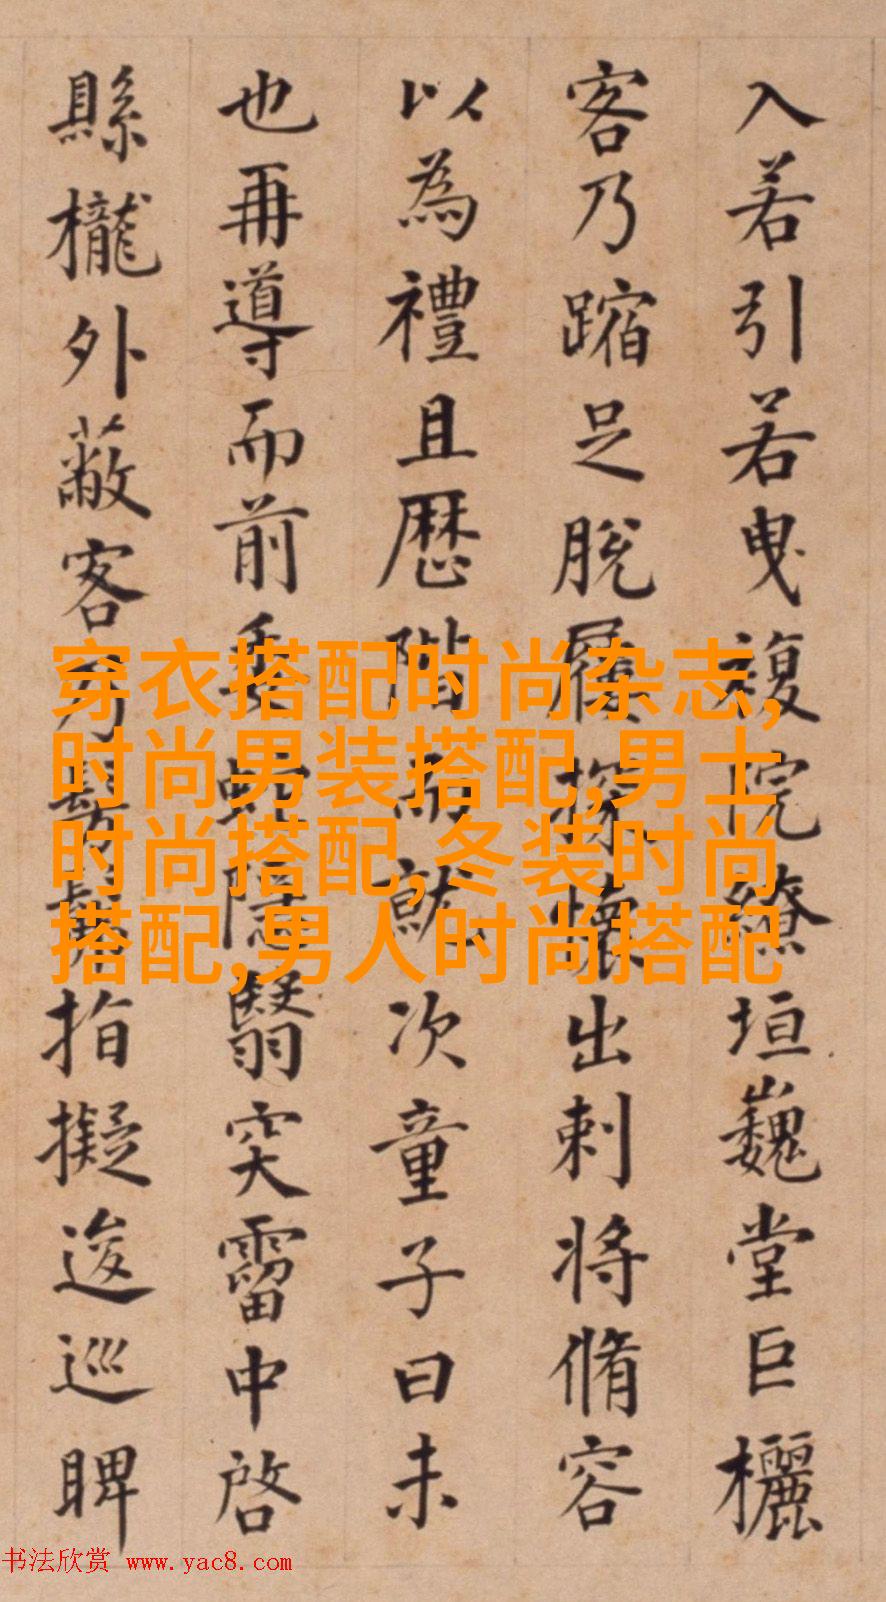 入若引若曳複院繚垣巍堂巨欐
客乃蹜足脫屨探懷出刺將脩容
以為禮且歷階而就次童子曰未
也再導而前委蛇隱翳穾霤中啓
縣櫳外蔽客乃髣髴指擬逡巡睥
穿衣搭配时尚杂志,
时尚男装搭配,男士
时尚搭配,冬装时尚
搭配,男人时尚搭配
书法欣赏 www.yac8.com